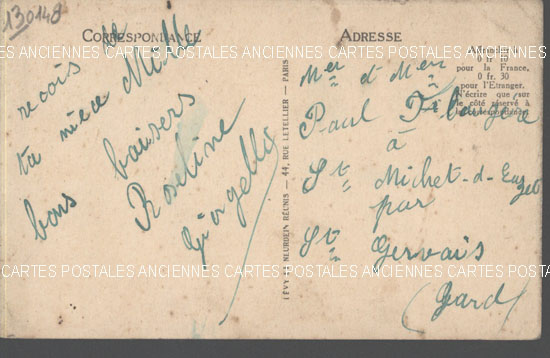 130148
CORRESPONDANCE
reçois de
ta nièce Mille
bons baisers
Roseline
Giorgelly
LÉVY & NEURDEIN RÉUNIS — 44, RUE LETELLIER — PARIS
ADRESSE
0 fr.
pour la France,
0 fr. 30
pour l'Etranger.
N'écrire que sur
le côté réservé à
la correspondance
Mer et Mme
Paul
à
St Michel-d-Euzet
par
St Gervais
(Gard)
CARTES POSTALES ANCIENNES CARTES POSTALES ANCIENNES CARTES POSTALES ANCIENNES
CARTES POSTALES ANCIENNES CARTES POSTALES ANCIENNES CARTES POSTALES ANCIENNES